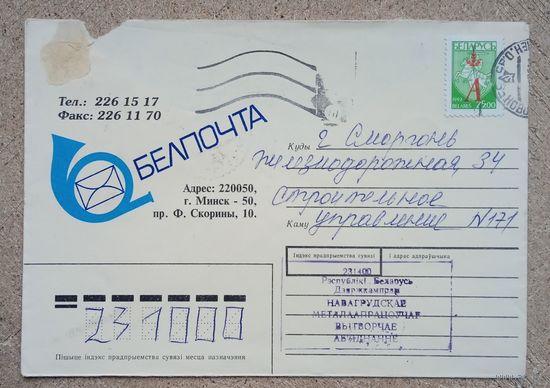 Тел.: 226 15 17
Факс: 226 11 70
БЕЛПОЧТА
Адрес: 220050,
г. Минск - 50,
пр. Ф. Скорины, 10.
БЕЛАРУСЬ
А
1993
BELARUS
75.00
Куды г Сморгонь
Железнодорожная, 34
строительное
Каму управление N 171
Індэкс прадпрыемства сувязі і адрас адпраўшчыка
231400
Рэспублікі Беларусь
Дзяржкампрам
НАВАГРУДСКАЕ
МЕТАЛААПРАЦОЎЧАЕ
ВЫТВОРЧАЕ
АБ'ЯДНАННЕ
231000
Пішыце індэкс прадпрыемства сувязі месца назначэння